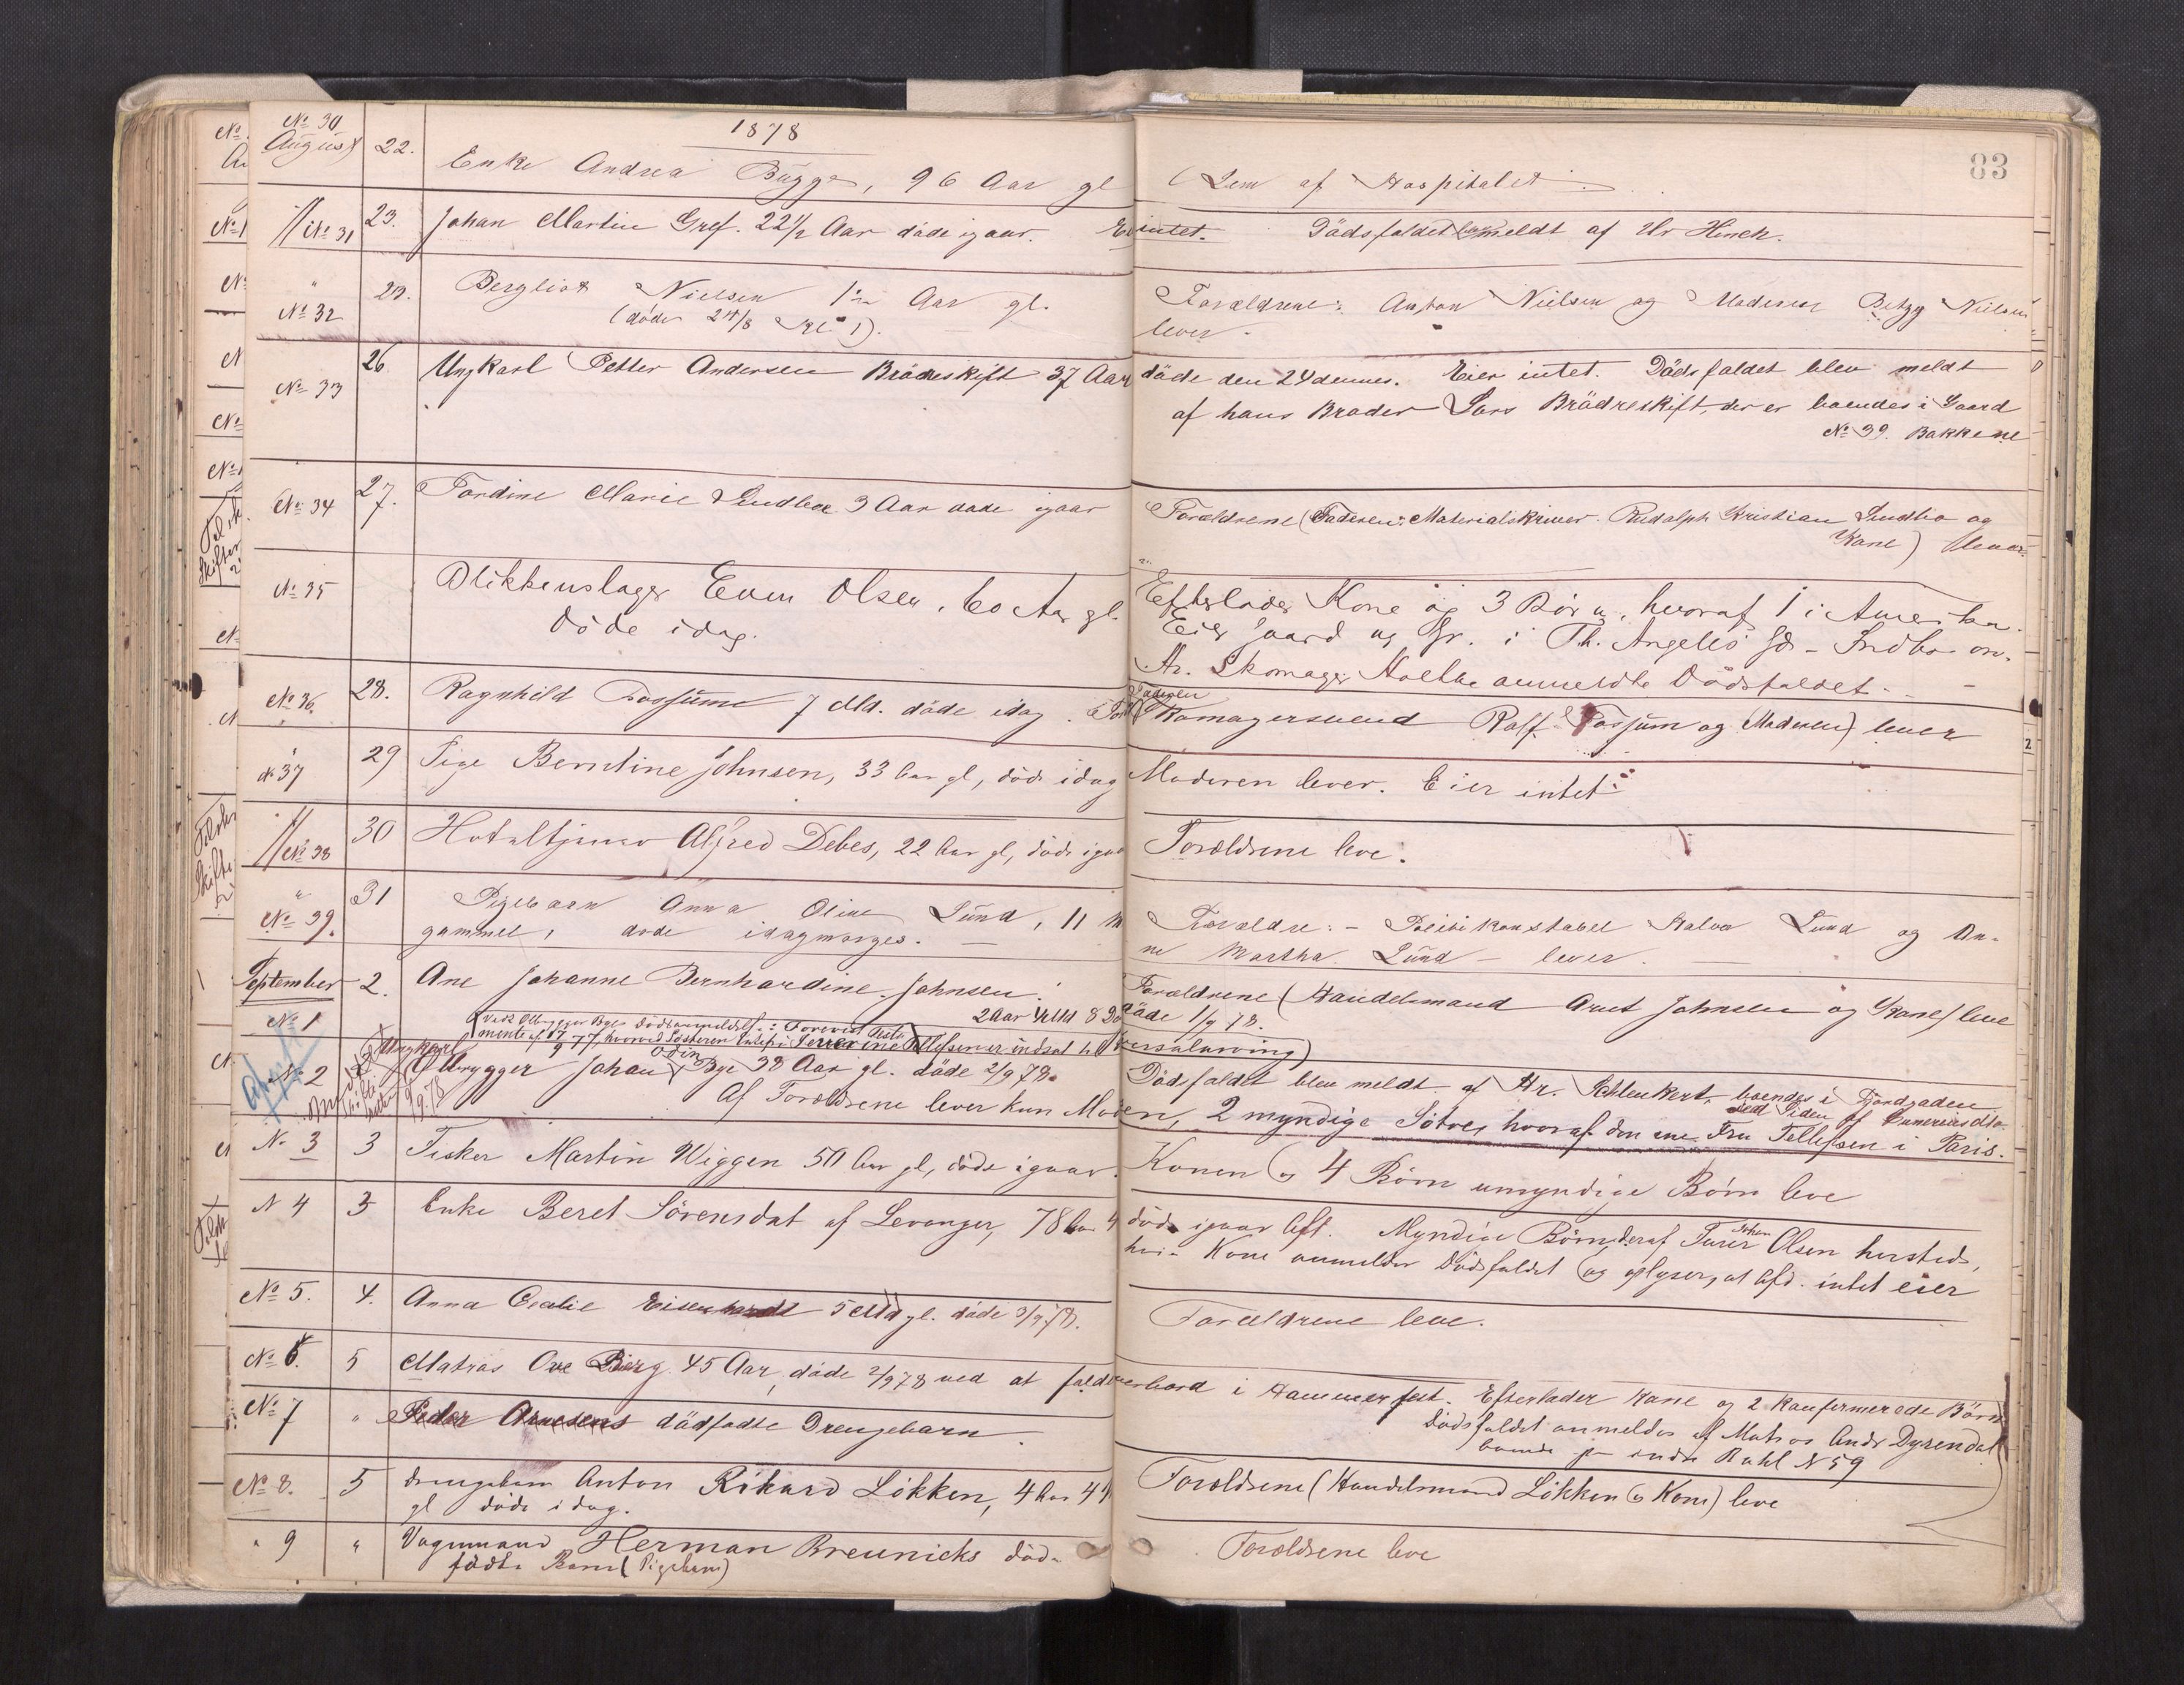 1878
83
No 30 August 22. Enke Andrea Bugge, 96 Aar gl
(Lem af Hospitalet
No 31 23. Johan Martin Gref. 22 1/2 Aar døde igaar. Eier intet.
Dødsfaldet meldt af Hr Hinch.
" No 32 23. Bergliot Nielsen 1 Aar gl.
(døde 24/8 Kl. 1).
Forældrene: Anton Nielsen og Moderen Betzy Nielsen
lever.
No 33 26 Ungkarl Petter Andersen Brødreskift 37 Aar
døde den 24 dennes. Eier intet. Dødsfaldet blev meldt
af hans Broder Lars Brødreskift, der er boendes i Gaard
No 39. Bakkene
No 34 27. Tordine Marie Lindboe 3 Aar døde igaar
Forældrene (Faderen: Materialskriver Rudolph Kristian Lindbo og
Kone) lever
No 35 Blikkenslager Even Olsen, 60 Aar gl.
døde idag.
Efterlader Kone og 3 Børn, hvoraf 1 i Amerika.
Eier Gaard og Gr. i Th. Angells Gd - Indbo m.
Hr. Skomager Holtbe anmeldte Dødsfaldet.
No 36. 28. Ragnhild Fossum 7 Md. døde idag.
Faderen
Skomagersvend Rolf Fossum og Moderen) lever
No 37 29 Pige Berntine Johnsen, 33 Aar gl, døde idag
Moderen lever. Eier intet.
No 38 30 Hoteltjener Alfred Debes, 22 Aar gl, døde igaar
Forældrene leve.
" No 39. 31 Pigebarn Anna Oline Lund, 11 M
gammel, døde idagmorges.
Forældre: - Politikonstabel Halvor Lund og An-
ne Martha Lund - lever.
September No 1 2. Ane Johanne Bernhardine Johnsen.
2 Aar 4 Md 8 D
Forældrene (Handelsmand Arnt Johnsen og Kone) leve
døde 1/9 78.
mente af 17/9 77, hvorved Søsteren
No 2 Ungkarl Ølbrygger Johan Odin Bye 38 Aar gl. døde 2/9 78.
Dødsfaldet blev meldt af Hr. Schlenkert, boendes i
Af Forældrene lever kun Moderen, 2 myndige Søstre, hvoraf den ene Fru Tellefsen i Paris.
No 3 3 Fisker Martin Wiggen 50 Aar gl, døde igaar.
Konen og 4 Børn umyndige Børn leve
N 4 3 Enke Beret Sørensdat af Levanger, 78 Aar
døde igaar Aft. Myndige Børn, deraf Johan Olsen hersteds,
hvis Kone anmelder Dødsfaldet og oplyser, at Afd. intet eier
No 5. 4. Anna Cecilie Eisenhardt 5 Md gl. døde 3/9 78.
Forældrene leve.
No 6. 5 Matros Ove Berg 45 Aar, døde 2/9 78 ved at falde
overbord i Hammerfest. Efterlader Kone og 2 konfirmerede Børn
Dødsfaldet anmeldes af Matros Andr Dyrendal
boende paa indre Bakl N 59
No 7 " Peder Arnesens dødfødte Drengebarn.
No 8. 5 Drengebarn Anton Rikard Løkken, 4 Aar 4
gl døde idag.
Forældrene (Handelsmand Løkken og Kone) leve
" 9 " Vognmand Herman Breunicks død-
fødte Barn (Pigebarn)
Forældrene leve